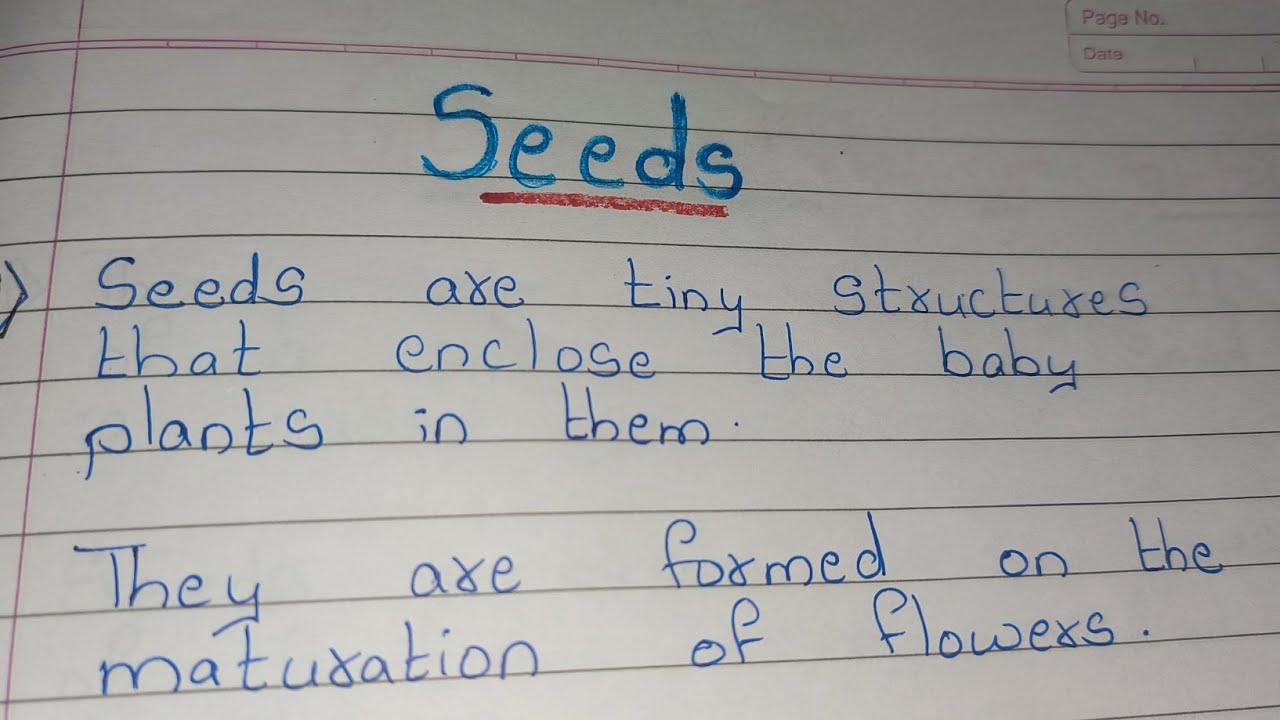 Page No.
Date
Seeds
) Seeds are tiny structures
that enclose the baby
plants in them.
They are formed on the
maturation of flowers.